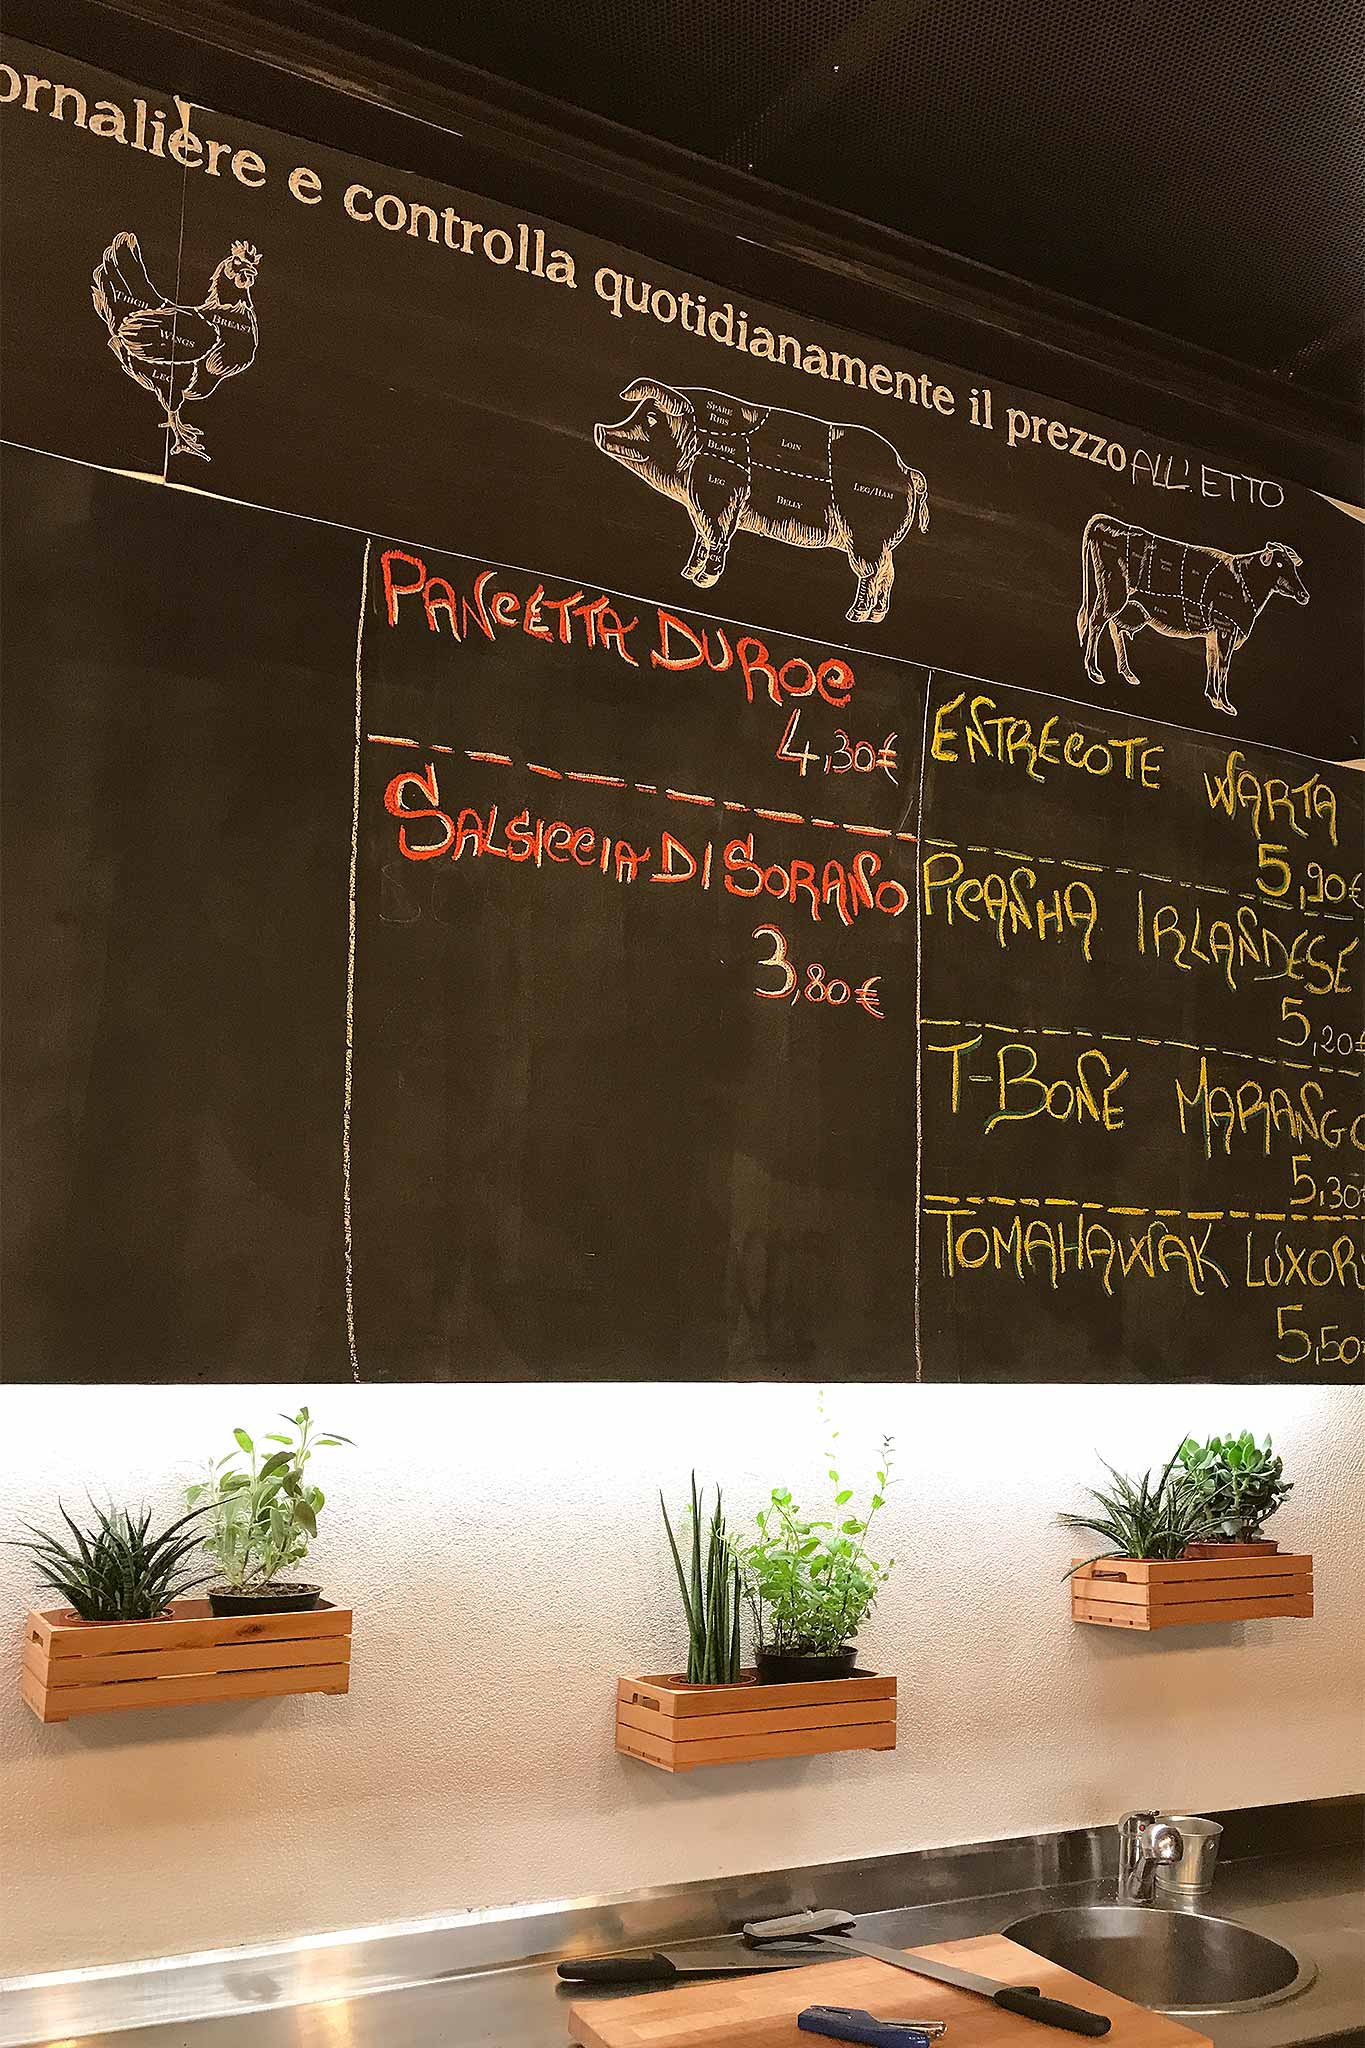 ornaliere e controlla quotidianamente il prezzo ALL'ETTO
THIGH
BREAST
WINGS
LEG
SPARE
RIBS
BLADE
LOIN
LEG
BELLY
LEG/HAM
HOCK
PANCETTA DUROC
4,30€
SALSICCIA DI SORANO
3,80€
ENTRECOTE WARTA
5,90€
PICANHA IRLANDESE
5,20€
T-BONE MARANGO
5,30
TOMAHAWAK LUXOR
5,50